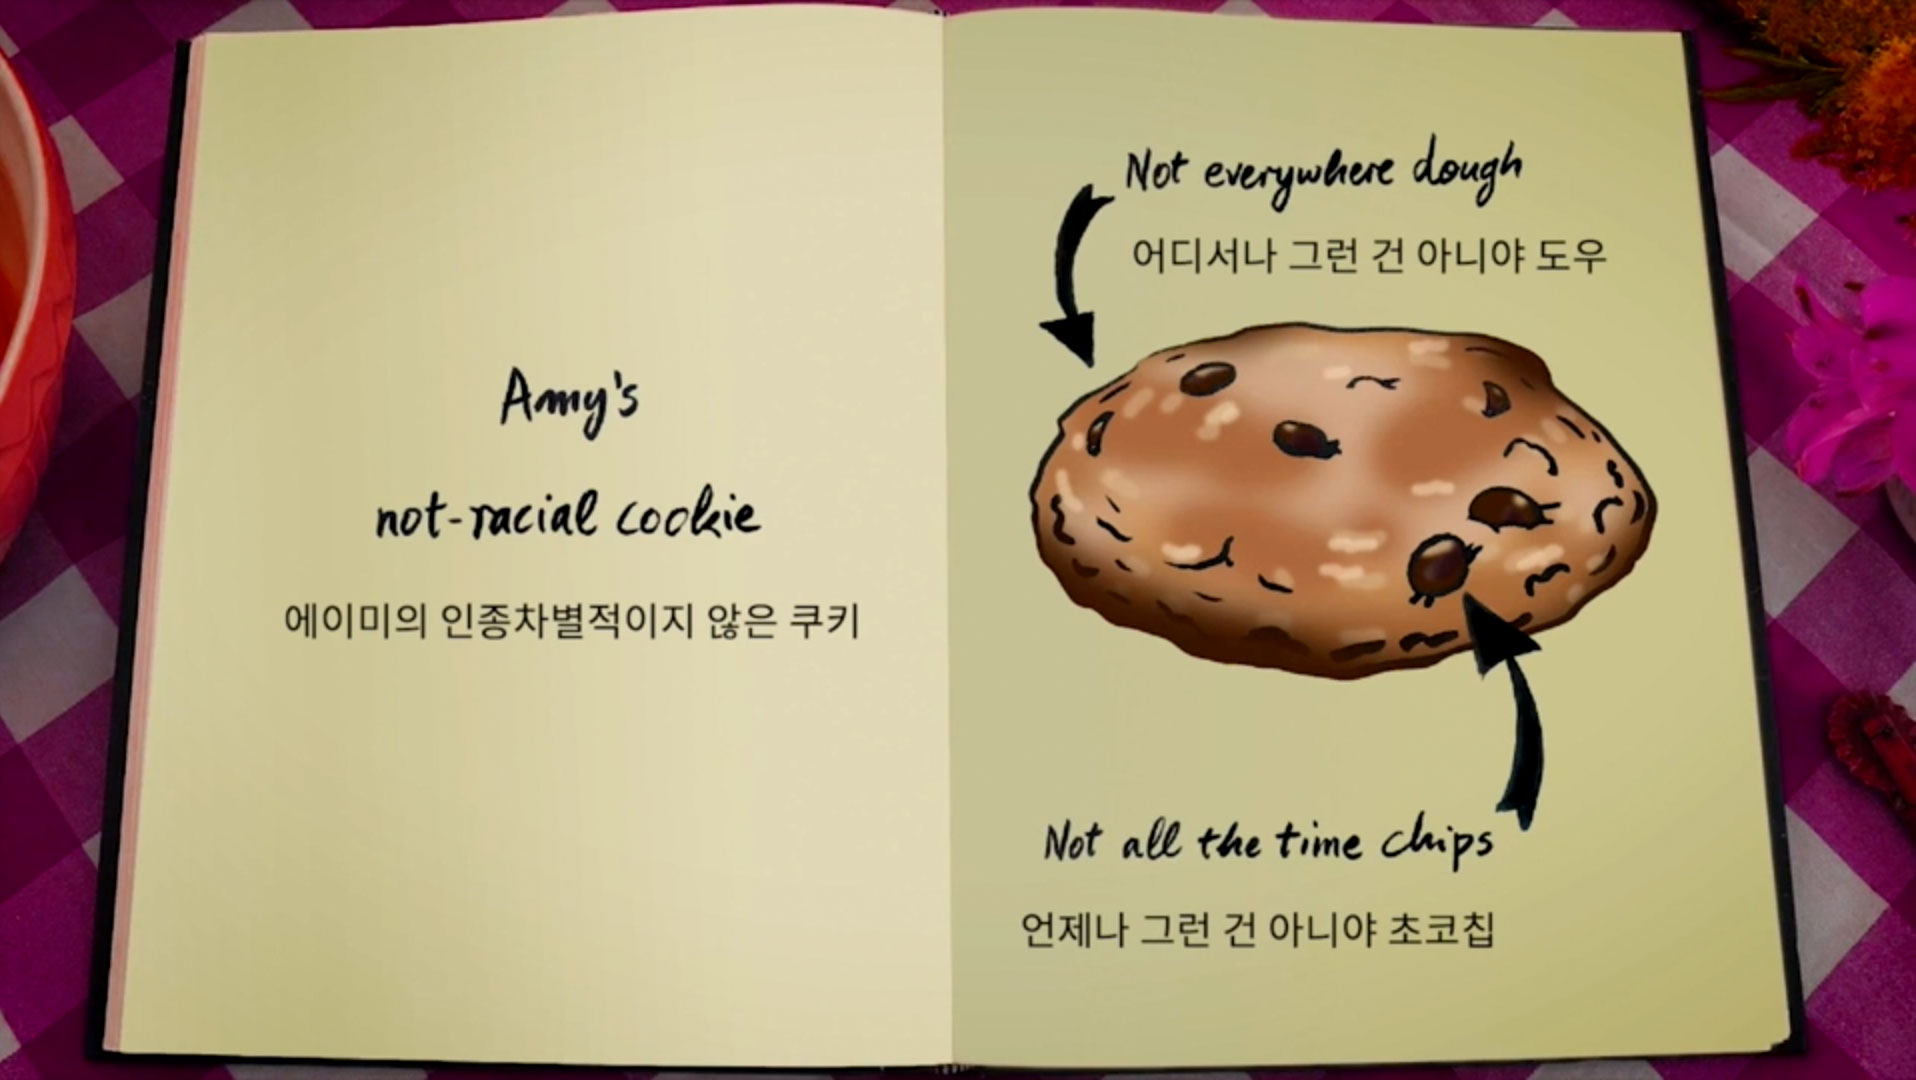 Amy's
not-racial cookie
에이미의 인종차별적이지 않은 쿠키
Not everywhere dough
어디서나 그런 건 아니야 도우
Not all the time chips
언제나 그런 건 아니야 초코칩